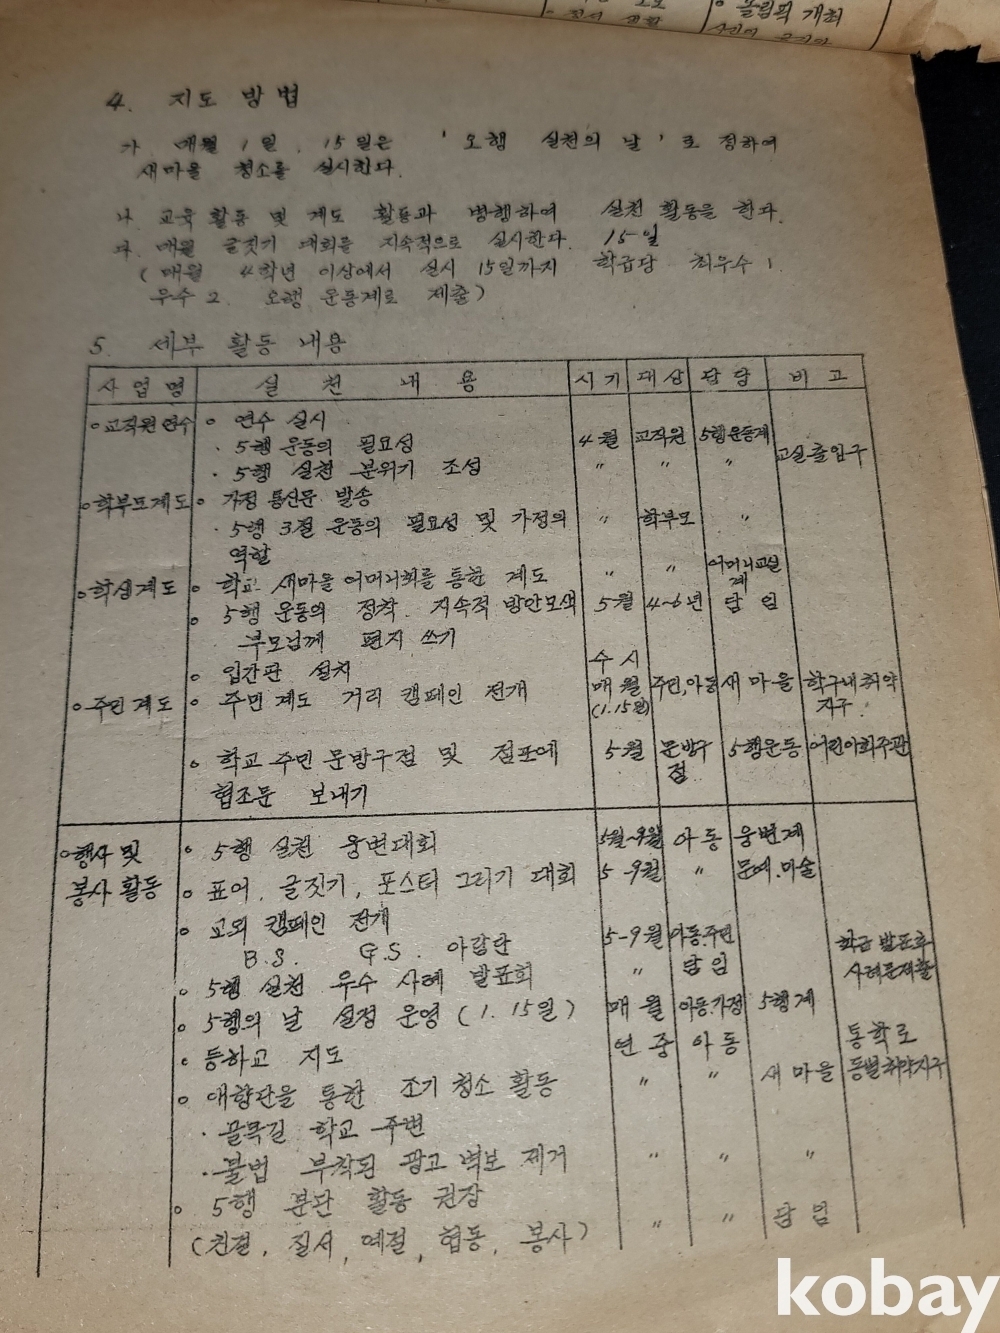 올림픽 개최
4. 지도 방법
가 매월 1일, 15일은 '오행 실천의 날'로 정하여
새마을 청소를 실시한다.
나. 교육 활동 및 계도 활동과 병행하여 실천 활동을 한다.
다. 매월 글짓기 대회를 지속적으로 실시한다. 15일
(매월 4학년 이상에서 실시 15일까지 학급당 최우수 1.
우수 2. 오행 운동계로 제출)
5. 세부 활동 내용
사업명 실천내용 시기 대상 담당 비고
o 교직원 연수 o 연수 실시
· 5행 운동의 필요성 4월 교직원 5행운동계
· 5행 실천 분위기 조성 〃 〃 〃 교실출입구
o 학부모계도 o 가정 통신문 발송
· 5행 3절 운동의 필요성 및 가정의 〃 학부모 〃
역할
o 학생계도 o 학교 새마을 어머니회를 통한 계도 〃 〃 어머니교실계
o 5행 운동의 정착. 지속적 방안모색 5월 4~6년 담임
부모님께 편지 쓰기
o 입간판 설치 수시
o 주민계도 o 주민 계도 거리 캠페인 전개 매월 (1.15일) 주민,아동 새마을 학구내취약지구
o 학교 주민 문방구점 및 점포에 5월 문방구점 5행운동 어린이회주관
협조문 보내기
o 행사 및 o 5행 실천 웅변대회 5월~9월 아동 웅변계
봉사 활동 o 표어, 글짓기, 포스터 그리기 대회 5-9월 〃 문예.미술
o 교외 캠페인 전개 5-9월 아동.주민
B.S. G.S. 아람단 학급 발표후
o 5행 실천 우수 사례 발표회 〃 담임 사례문제출
o 5행의 날 설정 운영 (1. 15일) 매월 아동.가정 5행계
o 등하교 지도 연중 아동 통학로
o 애향단을 통한 조기 청소 활동 〃 〃 새마을 동별취약지구
· 골목길 학교 주변
· 불법 부착된 광고 벽보 제거 〃 〃 〃
o 5행 분단 활동 권장
(친절, 질서, 예절, 협동, 봉사) 〃 〃 담임
kobay